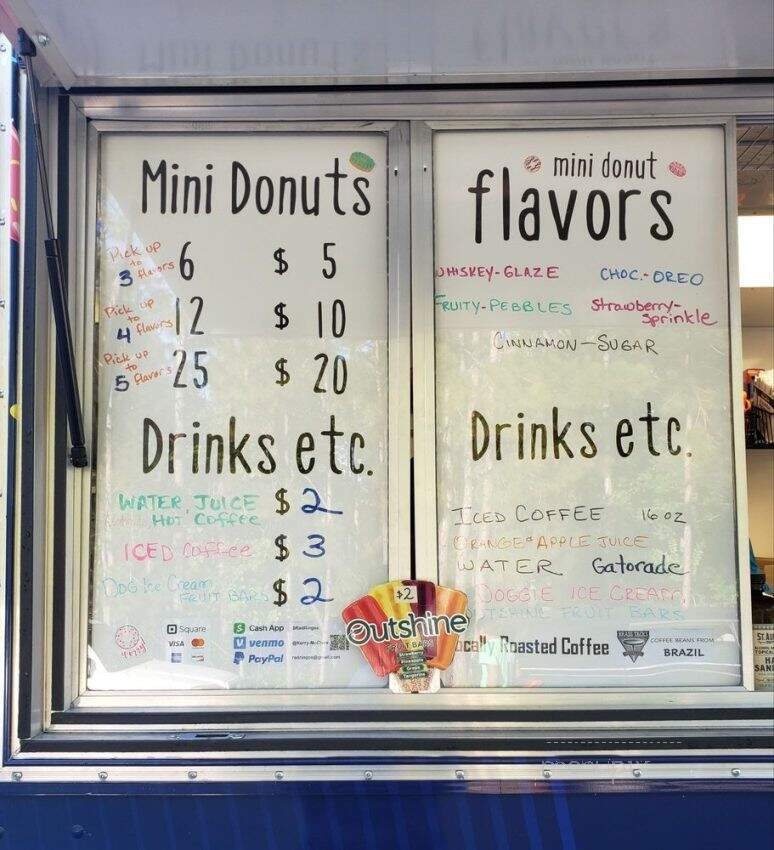 Mini Donuts
Pick up
to
3 flavors 6 $ 5
Pick up
to
4 flavors 12 $ 10
Pick up
to
5 flavors 25 $ 20
Drinks etc.
WATER, JUICE $ 2
HOT Coffee
ICED Coffee $ 3
DOG Ice Cream $ 2
FRUIT BARS
Square
VISA
Cash App
venmo
PayPal
mini donut
flavors
WHISKEY-GLAZE CHOC.-OREO
FRUITY-PEBBLES Strawberry-
Sprinkle
CINNAMON-SUGAR
Drinks etc.
ICED COFFEE 16 oz
ORANGE & APPLE JUICE
WATER Gatorade
DOGGIE ICE CREAM
OUTSHINE FRUIT BARS
$2
Outshine
FRUIT BARS
Strawberry
Grape
Tangerine
ocally Roasted Coffee
COFFEE BEANS FROM
BRAZIL